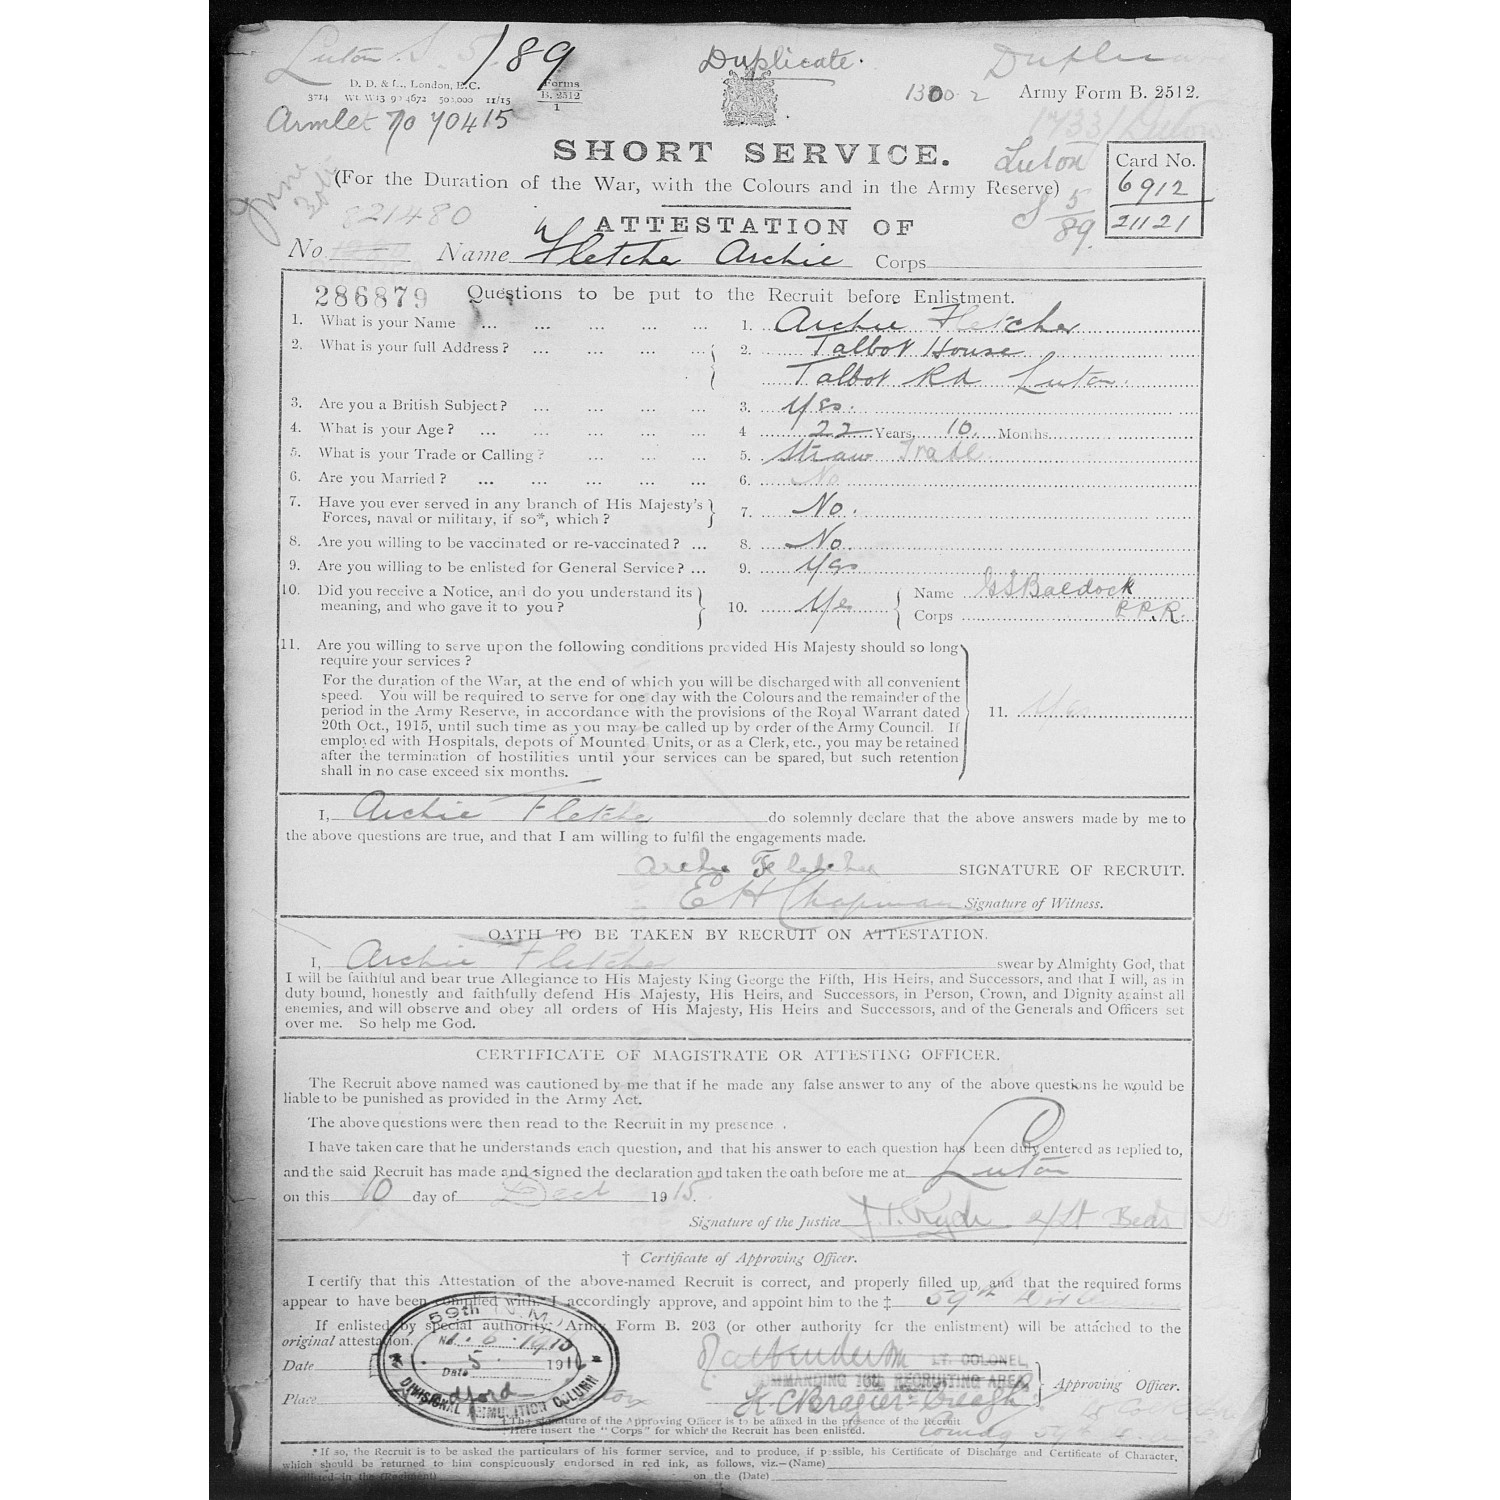 Luton S. 5/89
Duplicate.
D. D. & L., London, E.C.
Forms
B. 2512
1
1300 2 Army Form B. 2512.
Armlet No 70415
1733/Luton
SHORT SERVICE.
Luton
Card No.
6912
21121
(For the Duration of the War, with the Colours and in the Army Reserve)
S 5/89.
June
821480
ATTESTATION OF
No. Name Fletcher Archie Corps
286879 Questions to be put to the Recruit before Enlistment.
1. What is your Name ... 1. Archie Fletcher
2. What is your full Address? ... 2. Talbot House
Talbot Rd Luton.
3. Are you a British Subject? ... 3. Yes.
4. What is your Age? ... 4 22 Years 10 Months
5. What is your Trade or Calling? ... 5. Straw Trade
6. Are you Married? ... 6. No
7. Have you ever served in any branch of His Majesty's
Forces, naval or military, if so*, which? 7. No.
8. Are you willing to be vaccinated or re-vaccinated? ... 8. No.
9. Are you willing to be enlisted for General Service? ... 9. Yes
10. Did you receive a Notice, and do you understand its
meaning, and who gave it to you? 10. Yes Name Baldock
Corps
11. Are you willing to serve upon the following conditions provided His Majesty should so long
require your services?
For the duration of the War, at the end of which you will be discharged with all convenient
speed. You will be required to serve for one day with the Colours and the remainder of the
period in the Army Reserve, in accordance with the provisions of the Royal Warrant dated
20th Oct., 1915, until such time as you may be called up by order of the Army Council. If
employed with Hospitals, depots of Mounted Units, or as a Clerk, etc., you may be retained
after the termination of hostilities until your services can be spared, but such retention
shall in no case exceed six months.
11. Yes
I, Archie Fletcher do solemnly declare that the above answers made by me to
the above questions are true, and that I am willing to fulfil the engagements made.
Archie Fletcher SIGNATURE OF RECRUIT.
E H Chapman Signature of Witness.
OATH TO BE TAKEN BY RECRUIT ON ATTESTATION.
I, Archie Fletcher swear by Almighty God, that
I will be faithful and bear true Allegiance to His Majesty King George the Fifth, His Heirs, and Successors, and that I will, as in
duty bound, honestly and faithfully defend His Majesty, His Heirs, and Successors, in Person, Crown, and Dignity against all
enemies, and will observe and obey all orders of His Majesty, His Heirs and Successors, and of the Generals and Officers set
over me. So help me God.
CERTIFICATE OF MAGISTRATE OR ATTESTING OFFICER.
The Recruit above named was cautioned by me that if he made any false answer to any of the above questions he would be
liable to be punished as provided in the Army Act.
The above questions were then read to the Recruit in my presence.
I have taken care that he understands each question, and that his answer to each question has been duly entered as replied to,
and the said Recruit has made and signed the declaration and taken the oath before me at Luton
on this 10 day of Dect 1915.
Signature of the Justice Ryde Beds
† Certificate of Approving Officer.
I certify that this Attestation of the above-named Recruit is correct, and properly filled up, and that the required forms
appear to have been complied with. I accordingly approve, and appoint him to the ‡ 59th
If enlisted by special authority, Army Form B. 203 (or other authority for the enlistment) will be attached to the
original attestation.
59th
DIVISIONAL AMMUNITION COLUMN
Date
LT. COLONEL,
COMMANDING 10th RECRUITING AREA
Place
Approving Officer.
† The signature of the Approving Officer is to be affixed in the presence of the Recruit
‡ Here insert the "Corps" for which the Recruit has been enlisted.
* If so, the Recruit is to be asked the particulars of his former service, and to produce, if possible, his Certificate of Discharge and Certificate of Character,
which should be returned to him conspicuously endorsed in red ink, as follows, viz.—(Name)
enlisted in the (Regiment) on the (Date)